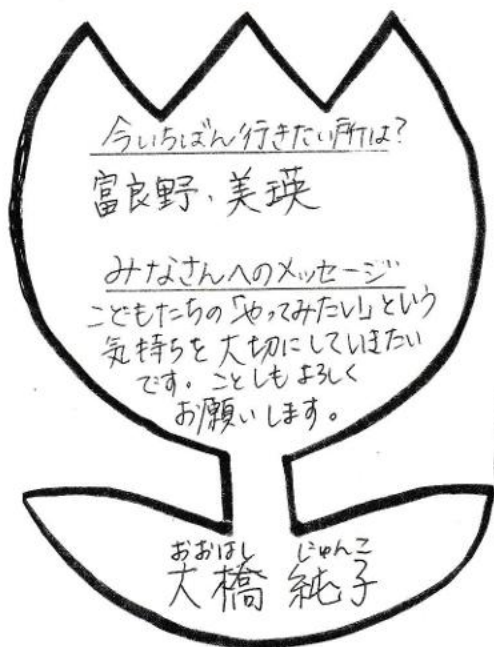 今いちばん行きたい所は?
富良野、美瑛
みなさんへのメッセージ
こどもたちの「やってみたい!」という
気持ちを大切にしていきたい
です。ことしもよろしく
お願いします。
おおはし じゅんこ
大橋 純子